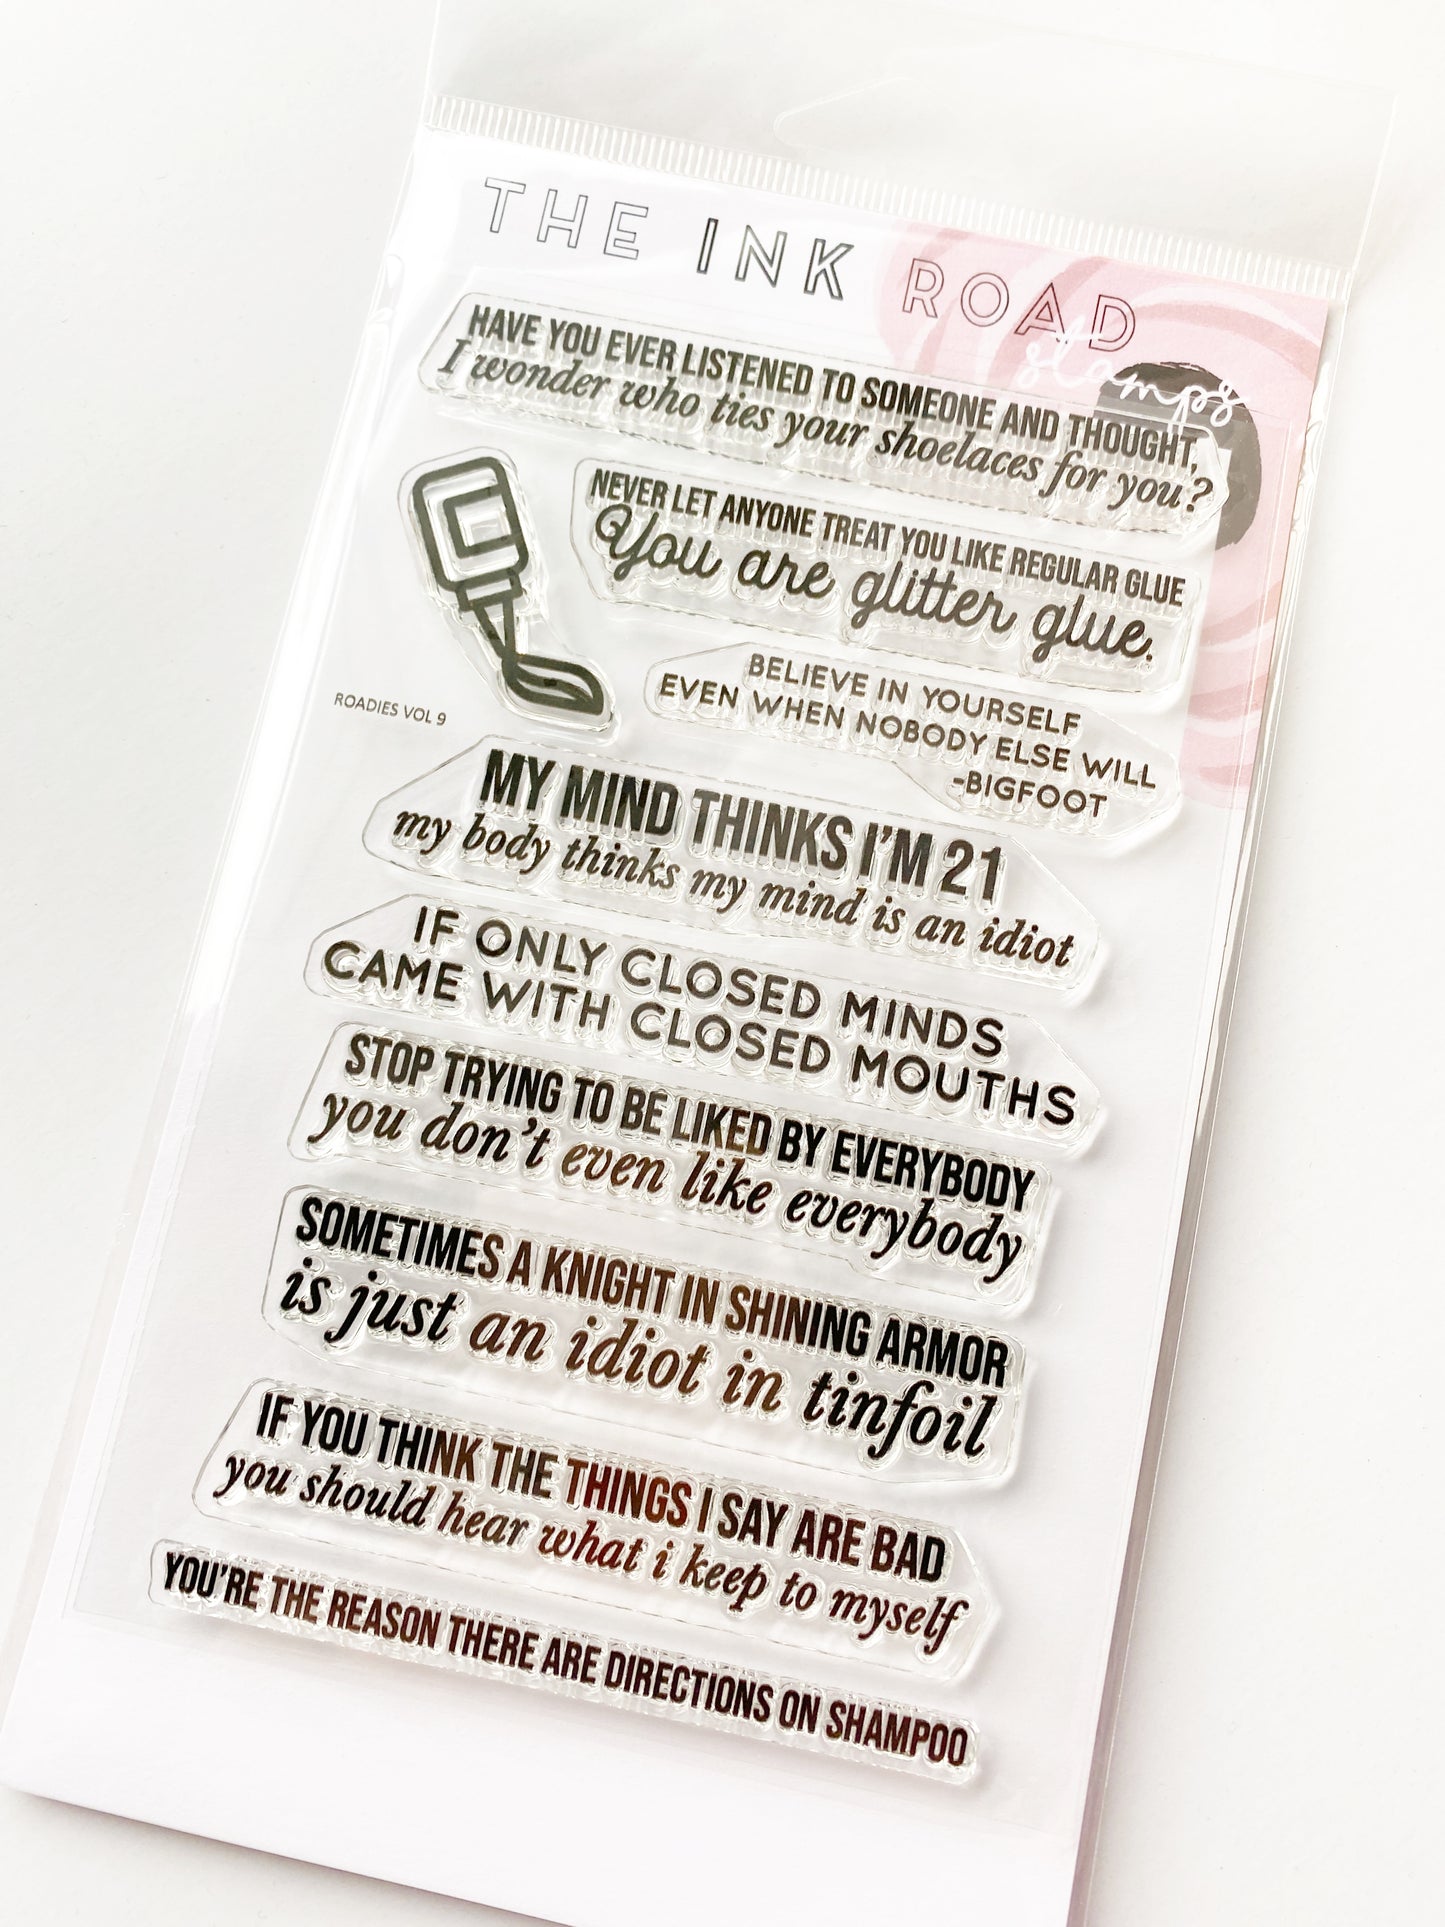 THE INK ROAD
stamps
HAVE YOU EVER LISTENED TO SOMEONE AND THOUGHT,
I wonder who ties your shoelaces for you?
NEVER LET ANYONE TREAT YOU LIKE REGULAR GLUE
You are glitter glue.
BELIEVE IN YOURSELF
EVEN WHEN NOBODY ELSE WILL
-BIGFOOT
ROADIES VOL 9
MY MIND THINKS I'M 21
my body thinks my mind is an idiot
IF ONLY CLOSED MINDS
CAME WITH CLOSED MOUTHS
STOP TRYING TO BE LIKED BY EVERYBODY
you don't even like everybody
SOMETIMES A KNIGHT IN SHINING ARMOR
is just an idiot in tinfoil
IF YOU THINK THE THINGS I SAY ARE BAD
you should hear what i keep to myself
YOU'RE THE REASON THERE ARE DIRECTIONS ON SHAMPOO